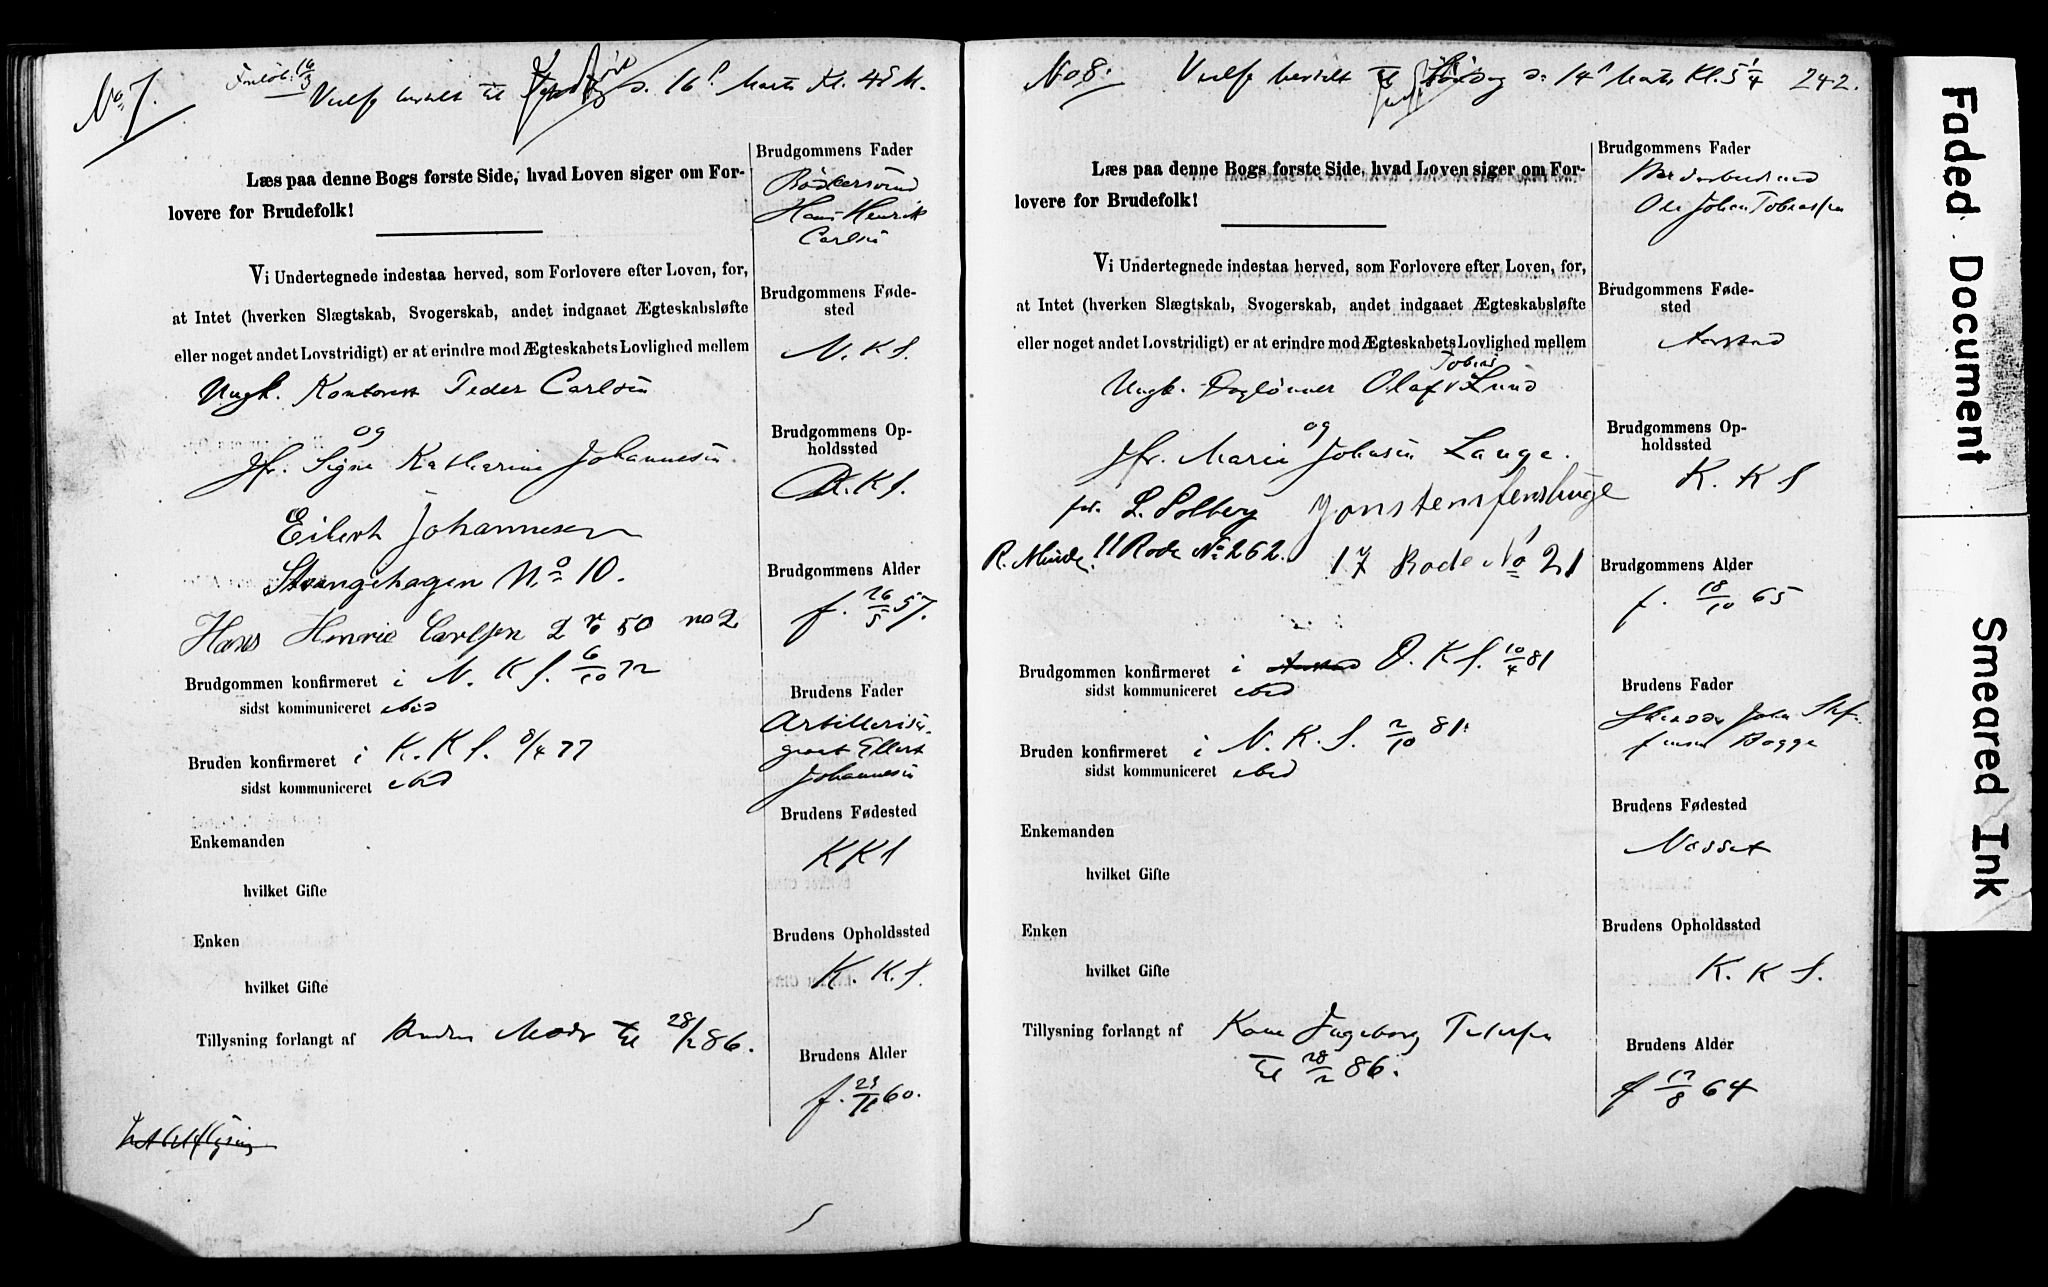 No 7.
Vielse bestilt til d. 16d Marts Kl.
Læs paa denne Bogs første Side, hvad Loven siger om For-
lovere for Brudefolk!
Vi Undertegnede indestaa herved, som Forlovere efter Loven, for,
at Intet (hverken Slægtskab, Svogerskab, andet indgaaet Ægteskabsløfte
eller noget andet Lovstridigt) er at erindre mod Ægteskabets Lovlighed mellem
Ungk. Kontorist Peder Carlsen
og
Jfr. Signe Katharine Johannesen
Eilert Johannesen
Strangehagen No 10.
Hans Henric Carlsen 2 50 no 2
Brudgommen konfirmeret i N. K S. 6/10 72
sidst kommuniceret ibid
Bruden konfirmeret i K. K S. 8/4 77
sidst kommuniceret ibid
Enkemanden
hvilket Gifte
Enken
hvilket Gifte
Tillysning forlangt af Brudens Moder til 28/2 86.
Brudgommens Fader
Hans Henrik
Carlsen
Brudgommens Føde-
sted
N. K S.
Brudgommens Op-
holdssted
K S.
Brudgommens Alder
f. 26/5 57.
Brudens Fader
Artilleriser-
geant Ellert
Johannesen
Brudens Fødested
K K S
Brudens Opholdssted
K. K. S.
Brudens Alder
f. 60.
No 8.
Vielse bestilt til d. 14d Marts Kl. 5 1/4
242.
Læs paa denne Bogs første Side, hvad Loven siger om For-
lovere for Brudefolk!
Vi Undertegnede indestaa herved, som Forlovere efter Loven, for,
at Intet (hverken Slægtskab, Svogerskab, andet indgaaet Ægteskabsløfte
eller noget andet Lovstridigt) er at erindre mod Ægteskabets Lovlighed mellem
Tobias
Ungk. Daglønner Olaf Lund
og
Jfr. Marie Johnsen Lange.
L. Solberg
R. Minde. 11 Rode No 262. 17 Rode No 21
Brudgommen konfirmeret i D. K S. 10/4 81
sidst kommuniceret ibid
Bruden konfirmeret i N. K. S. 2/10 81.
sidst kommuniceret ibid
Enkemanden
hvilket Gifte
Enken
hvilket Gifte
Tillysning forlangt af Kone Ingeborg Petersen
til 28/2 86.
Brudgommens Fader
Ole Johan Tobiassen
Brudgommens Føde-
sted
Aarstad
Brudgommens Op-
holdssted
K. K S
Brudgommens Alder
f. 18/10 65
Brudens Fader
Brudens Fødested
Næsset
Brudens Opholdssted
K. K S.
Brudens Alder
f 17/8 64
Faded Document
Smeared Ink